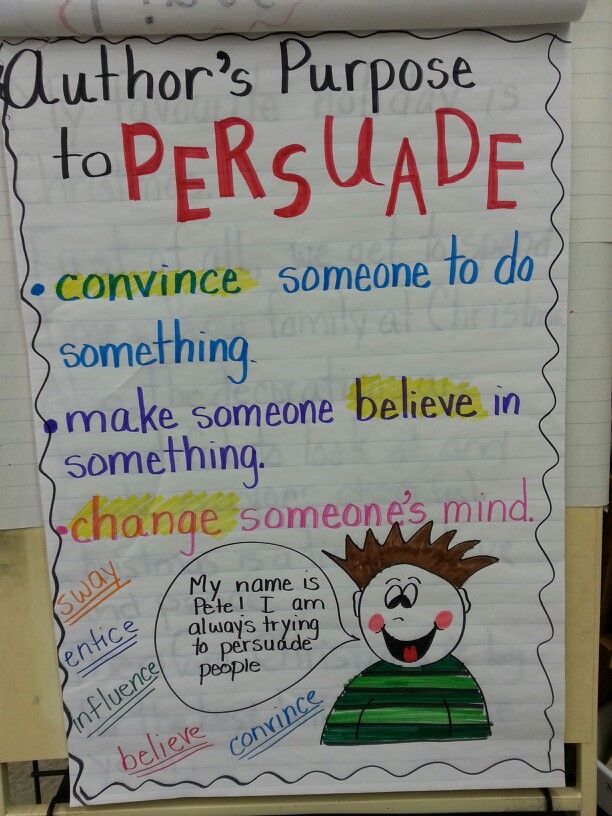 Author's Purpose
to PERSUADE
• convince someone to do
something.
• make someone believe in
something.
• change someone's mind.
My name is
Pete! I am
always trying
to persuade
people
sway
entice
influence
believe
convince